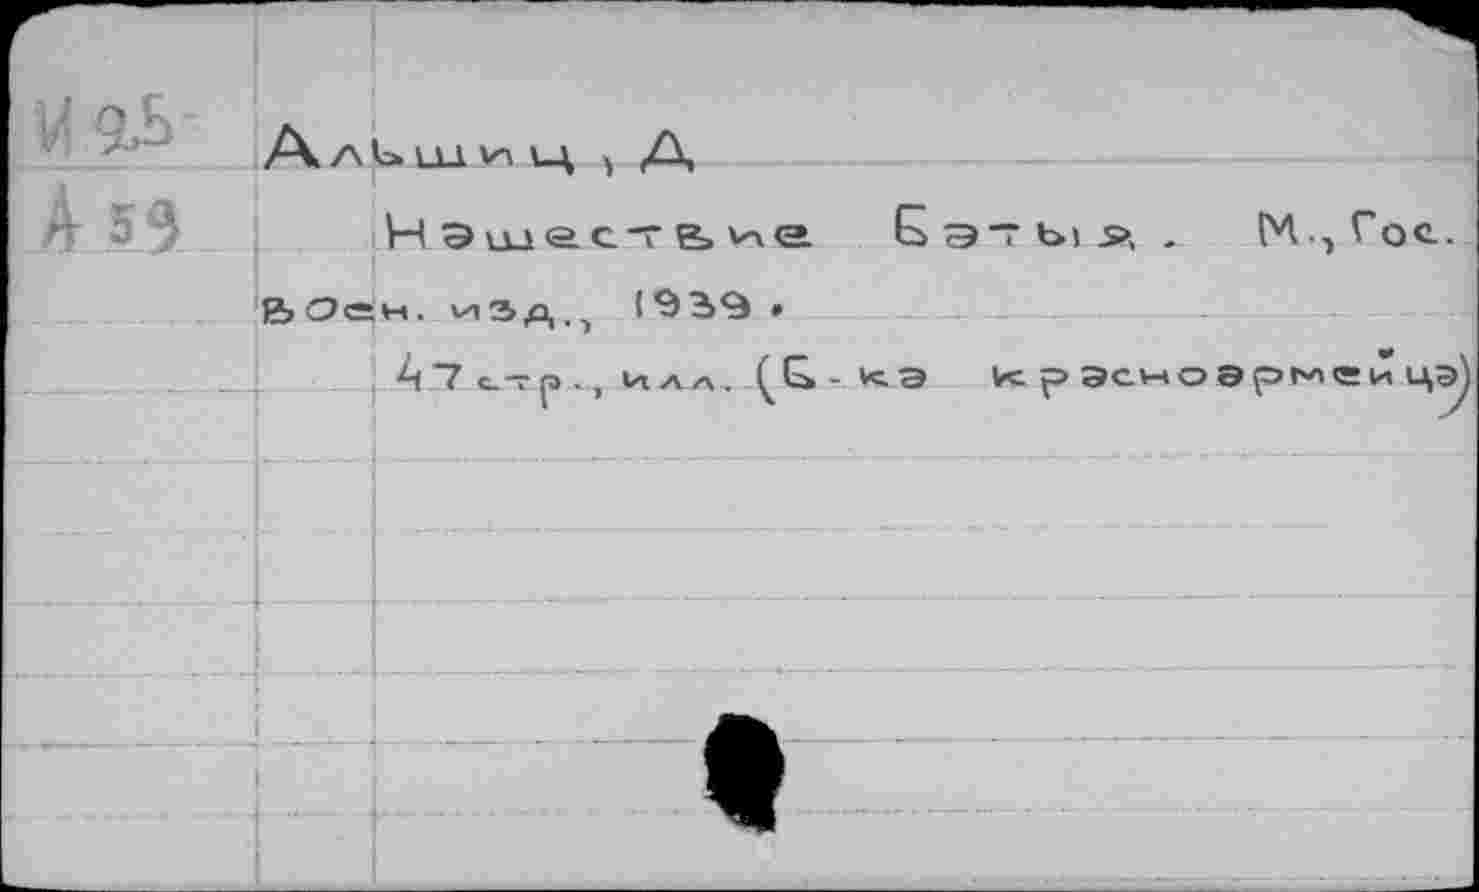 И 9.5
Альшиц, Д
А 59
Нашествие Батыя. М., Гос.
воен. изд., 1939.
47 стр., илл. (Б-ка красноармейца)